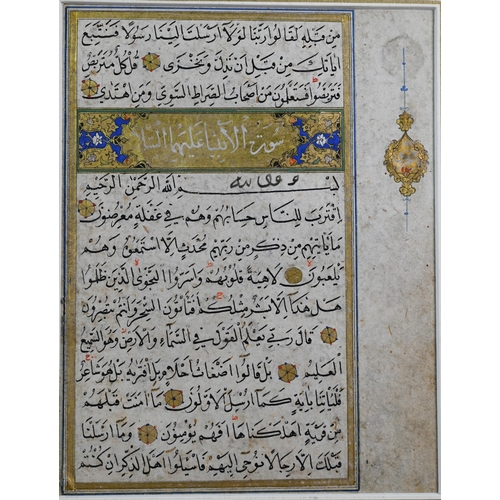 مِنْ قَبْلِهِ لَقَالُوا رَبَّنَا لَوْلَا اَرْسَلْتَ اِلَيْنَا رَسُولًا فَنَتَّبِعَ
اٰيَاتِكَ مِنْ قَبْلِ اَنْ نَذِلَّ وَنَخْزٰى قُلْ كُلٌّ مُتَرَبِّصٌ
فَتَرَبَّصُوا فَسَتَعْلَمُونَ مَنْ اَصْحَابُ الصِّرَاطِ السَّوِيِّ وَمَنِ اهْتَدٰى
سورة الانبيا عليهم السلام
وقف لله
بِسْمِ اللّٰهِ الرَّحْمٰنِ الرَّحِيمِ
اِقْتَرَبَ لِلنَّاسِ حِسَابُهُمْ وَهُمْ فِي غَفْلَةٍ مُعْرِضُونَ
مَا يَأْتِيهِمْ مِنْ ذِكْرٍ مِنْ رَبِّهِمْ مُحْدَثٍ اِلَّا اسْتَمَعُوهُ وَهُمْ
يَلْعَبُونَ لَاهِيَةً قُلُوبُهُمْ وَاَسَرُّوا النَّجْوَى الَّذِينَ ظَلَمُوا
هَلْ هٰذَا اِلَّا بَشَرٌ مِثْلُكُمْ اَفَتَأْتُونَ السِّحْرَ وَاَنْتُمْ تُبْصِرُونَ
قَالَ رَبِّي يَعْلَمُ الْقَوْلَ فِي السَّمَاءِ وَالْاَرْضِ وَهُوَ السَّمِيعُ
الْعَلِيمُ بَلْ قَالُوا اَضْغَاثُ اَحْلَامٍ بَلِ افْتَرٰيهُ بَلْ هُوَ شَاعِرٌ
فَلْيَأْتِنَا بِاٰيَةٍ كَمَا اُرْسِلَ الْاَوَّلُونَ مَا اٰمَنَتْ قَبْلَهُمْ
مِنْ قَرْيَةٍ اَهْلَكْنَاهَا اَفَهُمْ يُؤْمِنُونَ وَمَا اَرْسَلْنَا
قَبْلَكَ اِلَّا رِجَالًا نُوحِي اِلَيْهِمْ فَاسْئَلُوا اَهْلَ الذِّكْرِ اِنْ كُنْتُمْ